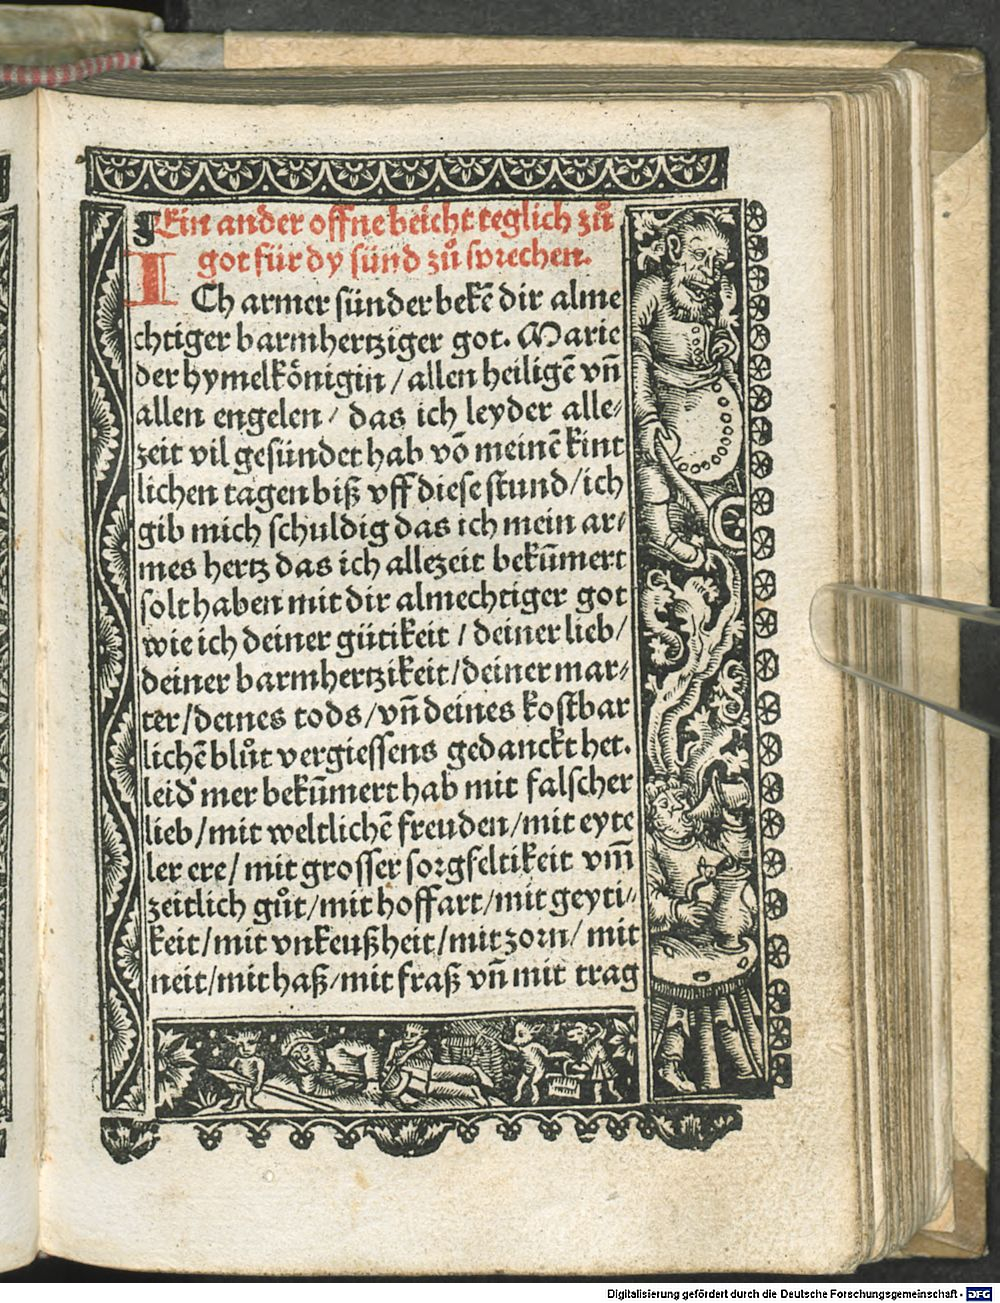 Ein ander offne beicht teglich zuͦ
got für dy sünd zuͦ sprechen.
ICh armer sünder bekē dir alme
chtiger barmhertziger got. Marie
der hymelkönigin / allen heiligē vn̄
allen engelen / das ich leyder alle⸗
zeit vil gesündet hab vō meinē kint
lichen tagen biß vff diese stund / ich
gib mich schuldig das ich mein ar⸗
mes hertz das ich allezeit bekūmert
solt haben mit dir almechtiger got
wie ich deiner gütikeit / deiner lieb /
deiner barmhertzikeit / deiner mar⸗
ter / deines tods / vn̄ deines kostbar
lichē bluͦt vergiessens gedanckt het.
leid' mer bekūmert hab mit falscher
lieb / mit weltlichē freuden / mit eyte
ler ere / mit grosser sorgfeltikeit vm̄
zeitlich guͦt / mit hoffart / mit geyti⸗
keit / mit vnkeußheit / mit zorn / mit
neit / mit haß / mit fraß vn̄ mit trag
Digitalisierung gefördert durch die Deutsche Forschungsgemeinschaft - DFG